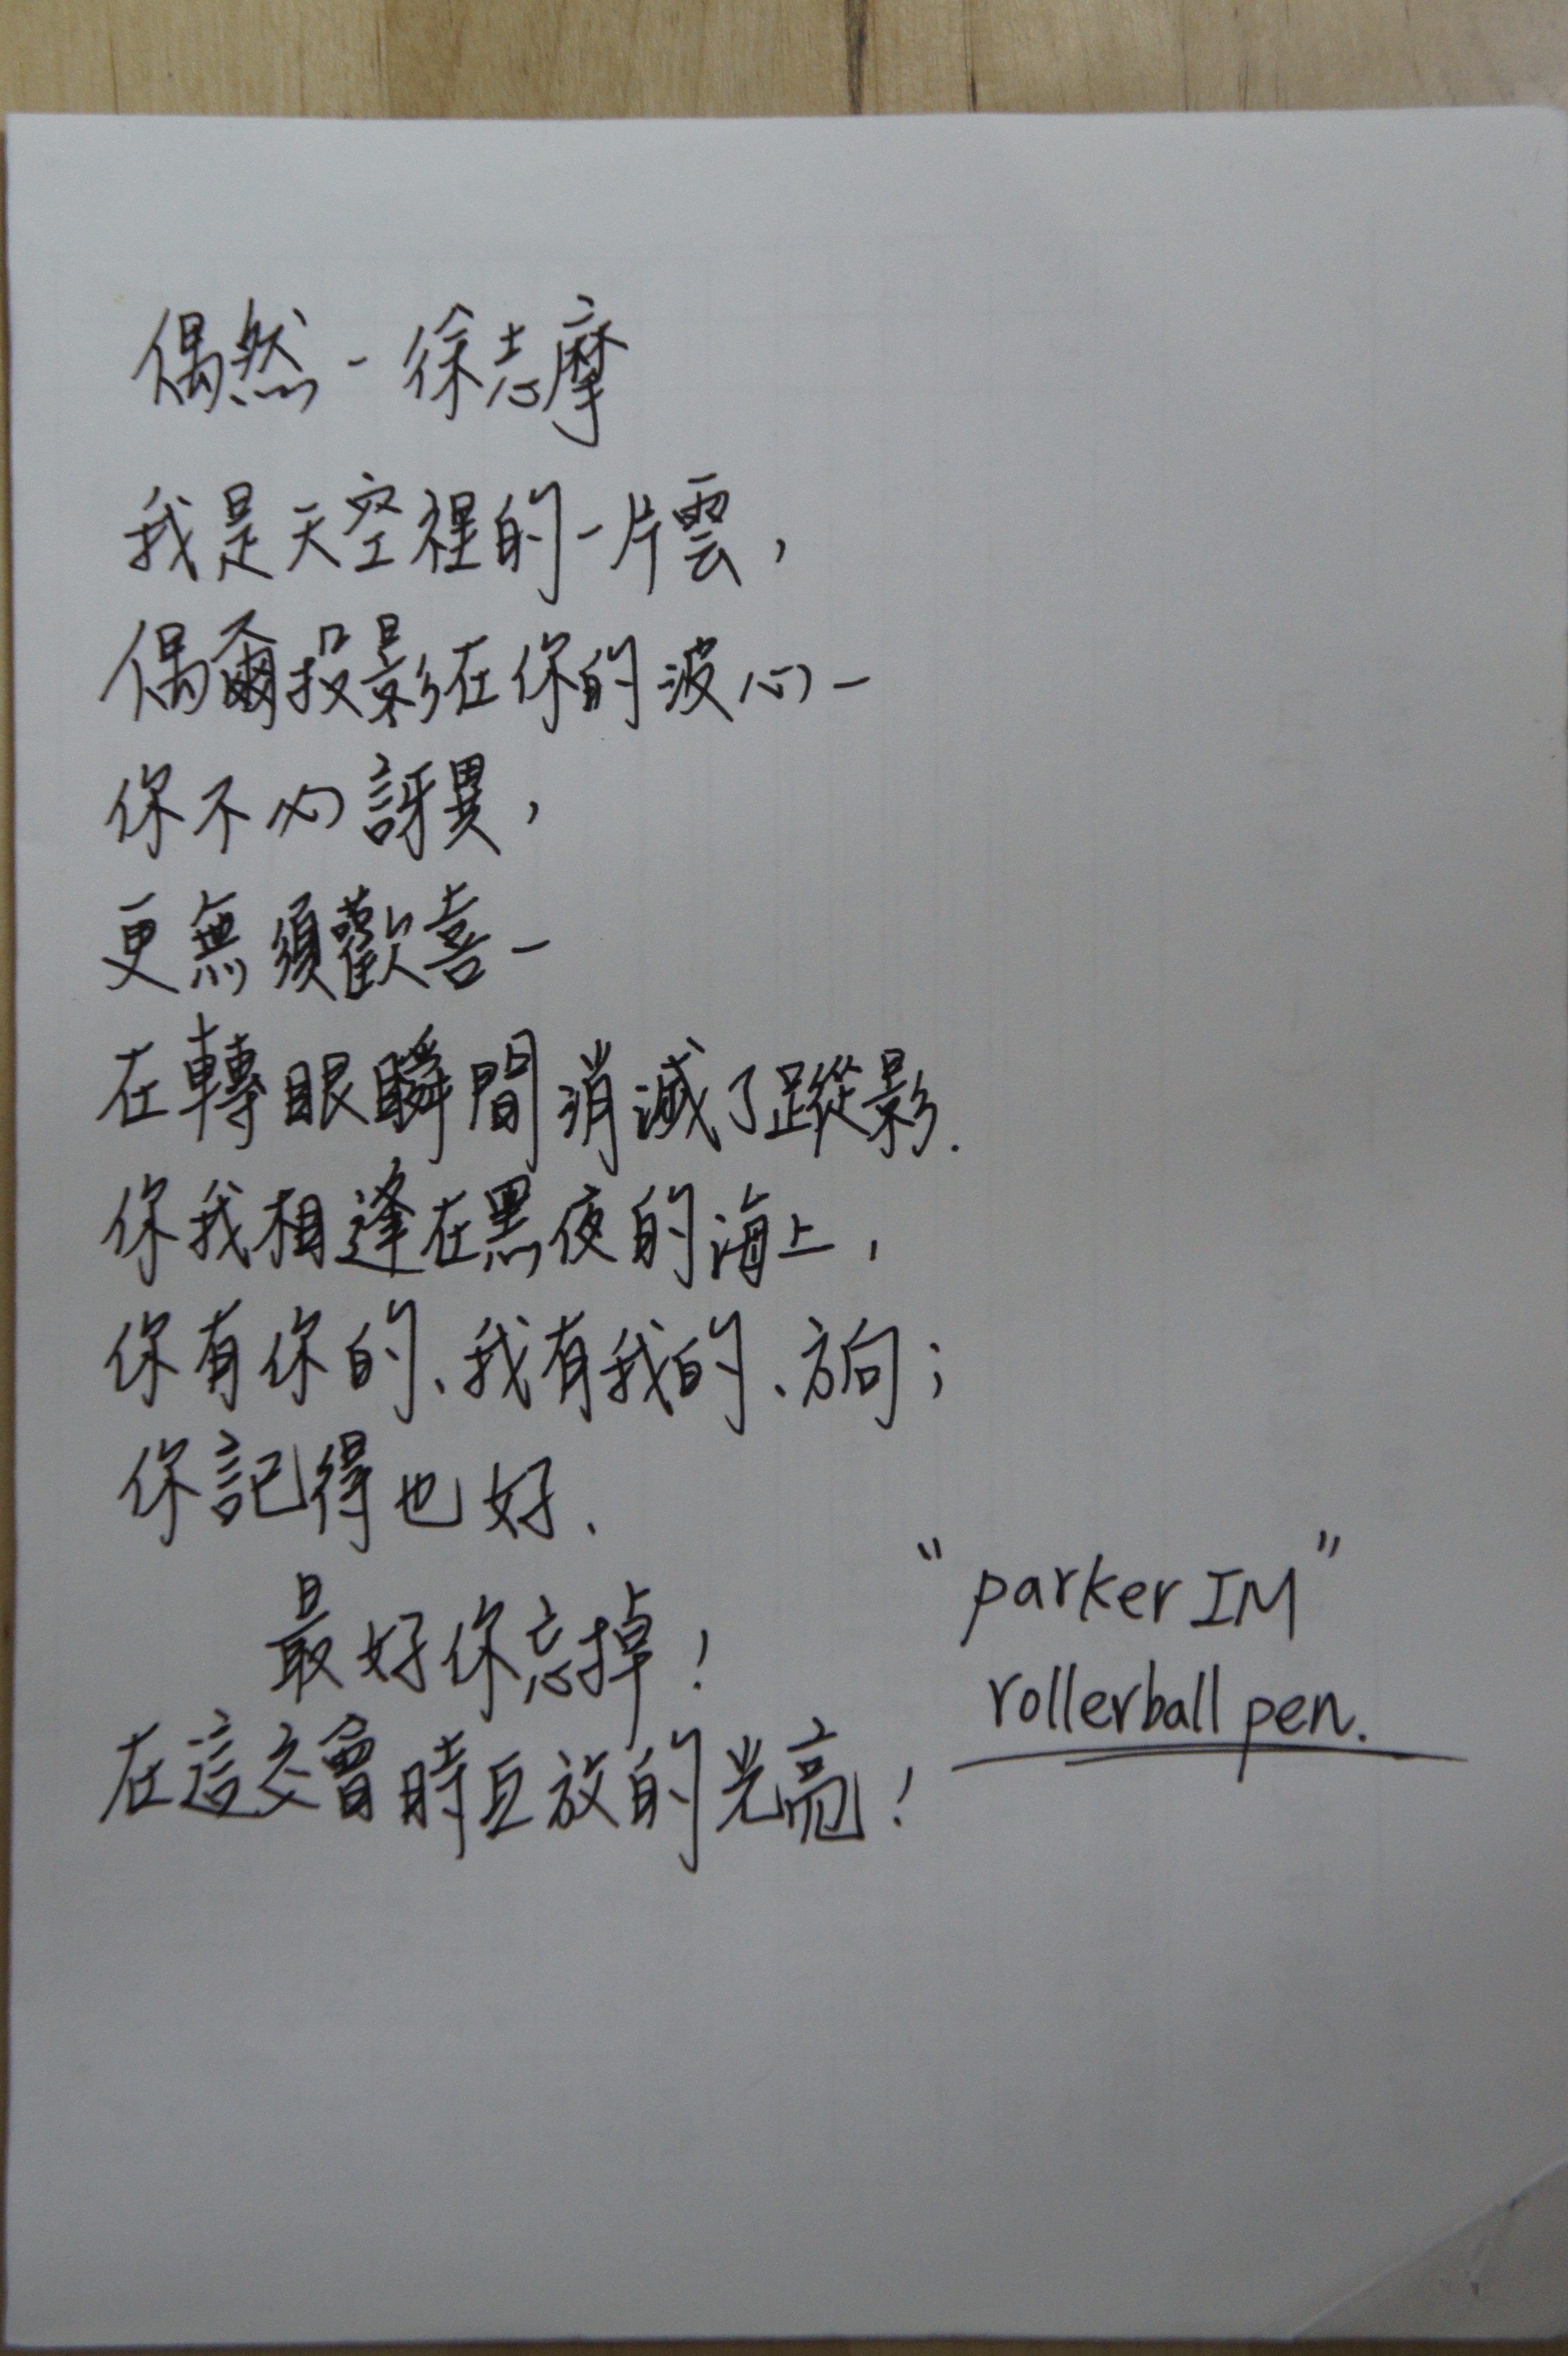 偶然 - 徐志摩
我是天空裡的一片雲，
偶爾投影在你的波心－
你不必訝異，
更無須歡喜－
在轉眼瞬間消滅了蹤影.
你我相逢在黑夜的海上，
你有你的、我有我的、方向；
你記得也好、
最好你忘掉！
在這交會時互放的光亮！
"parker IM"
rollerball pen.